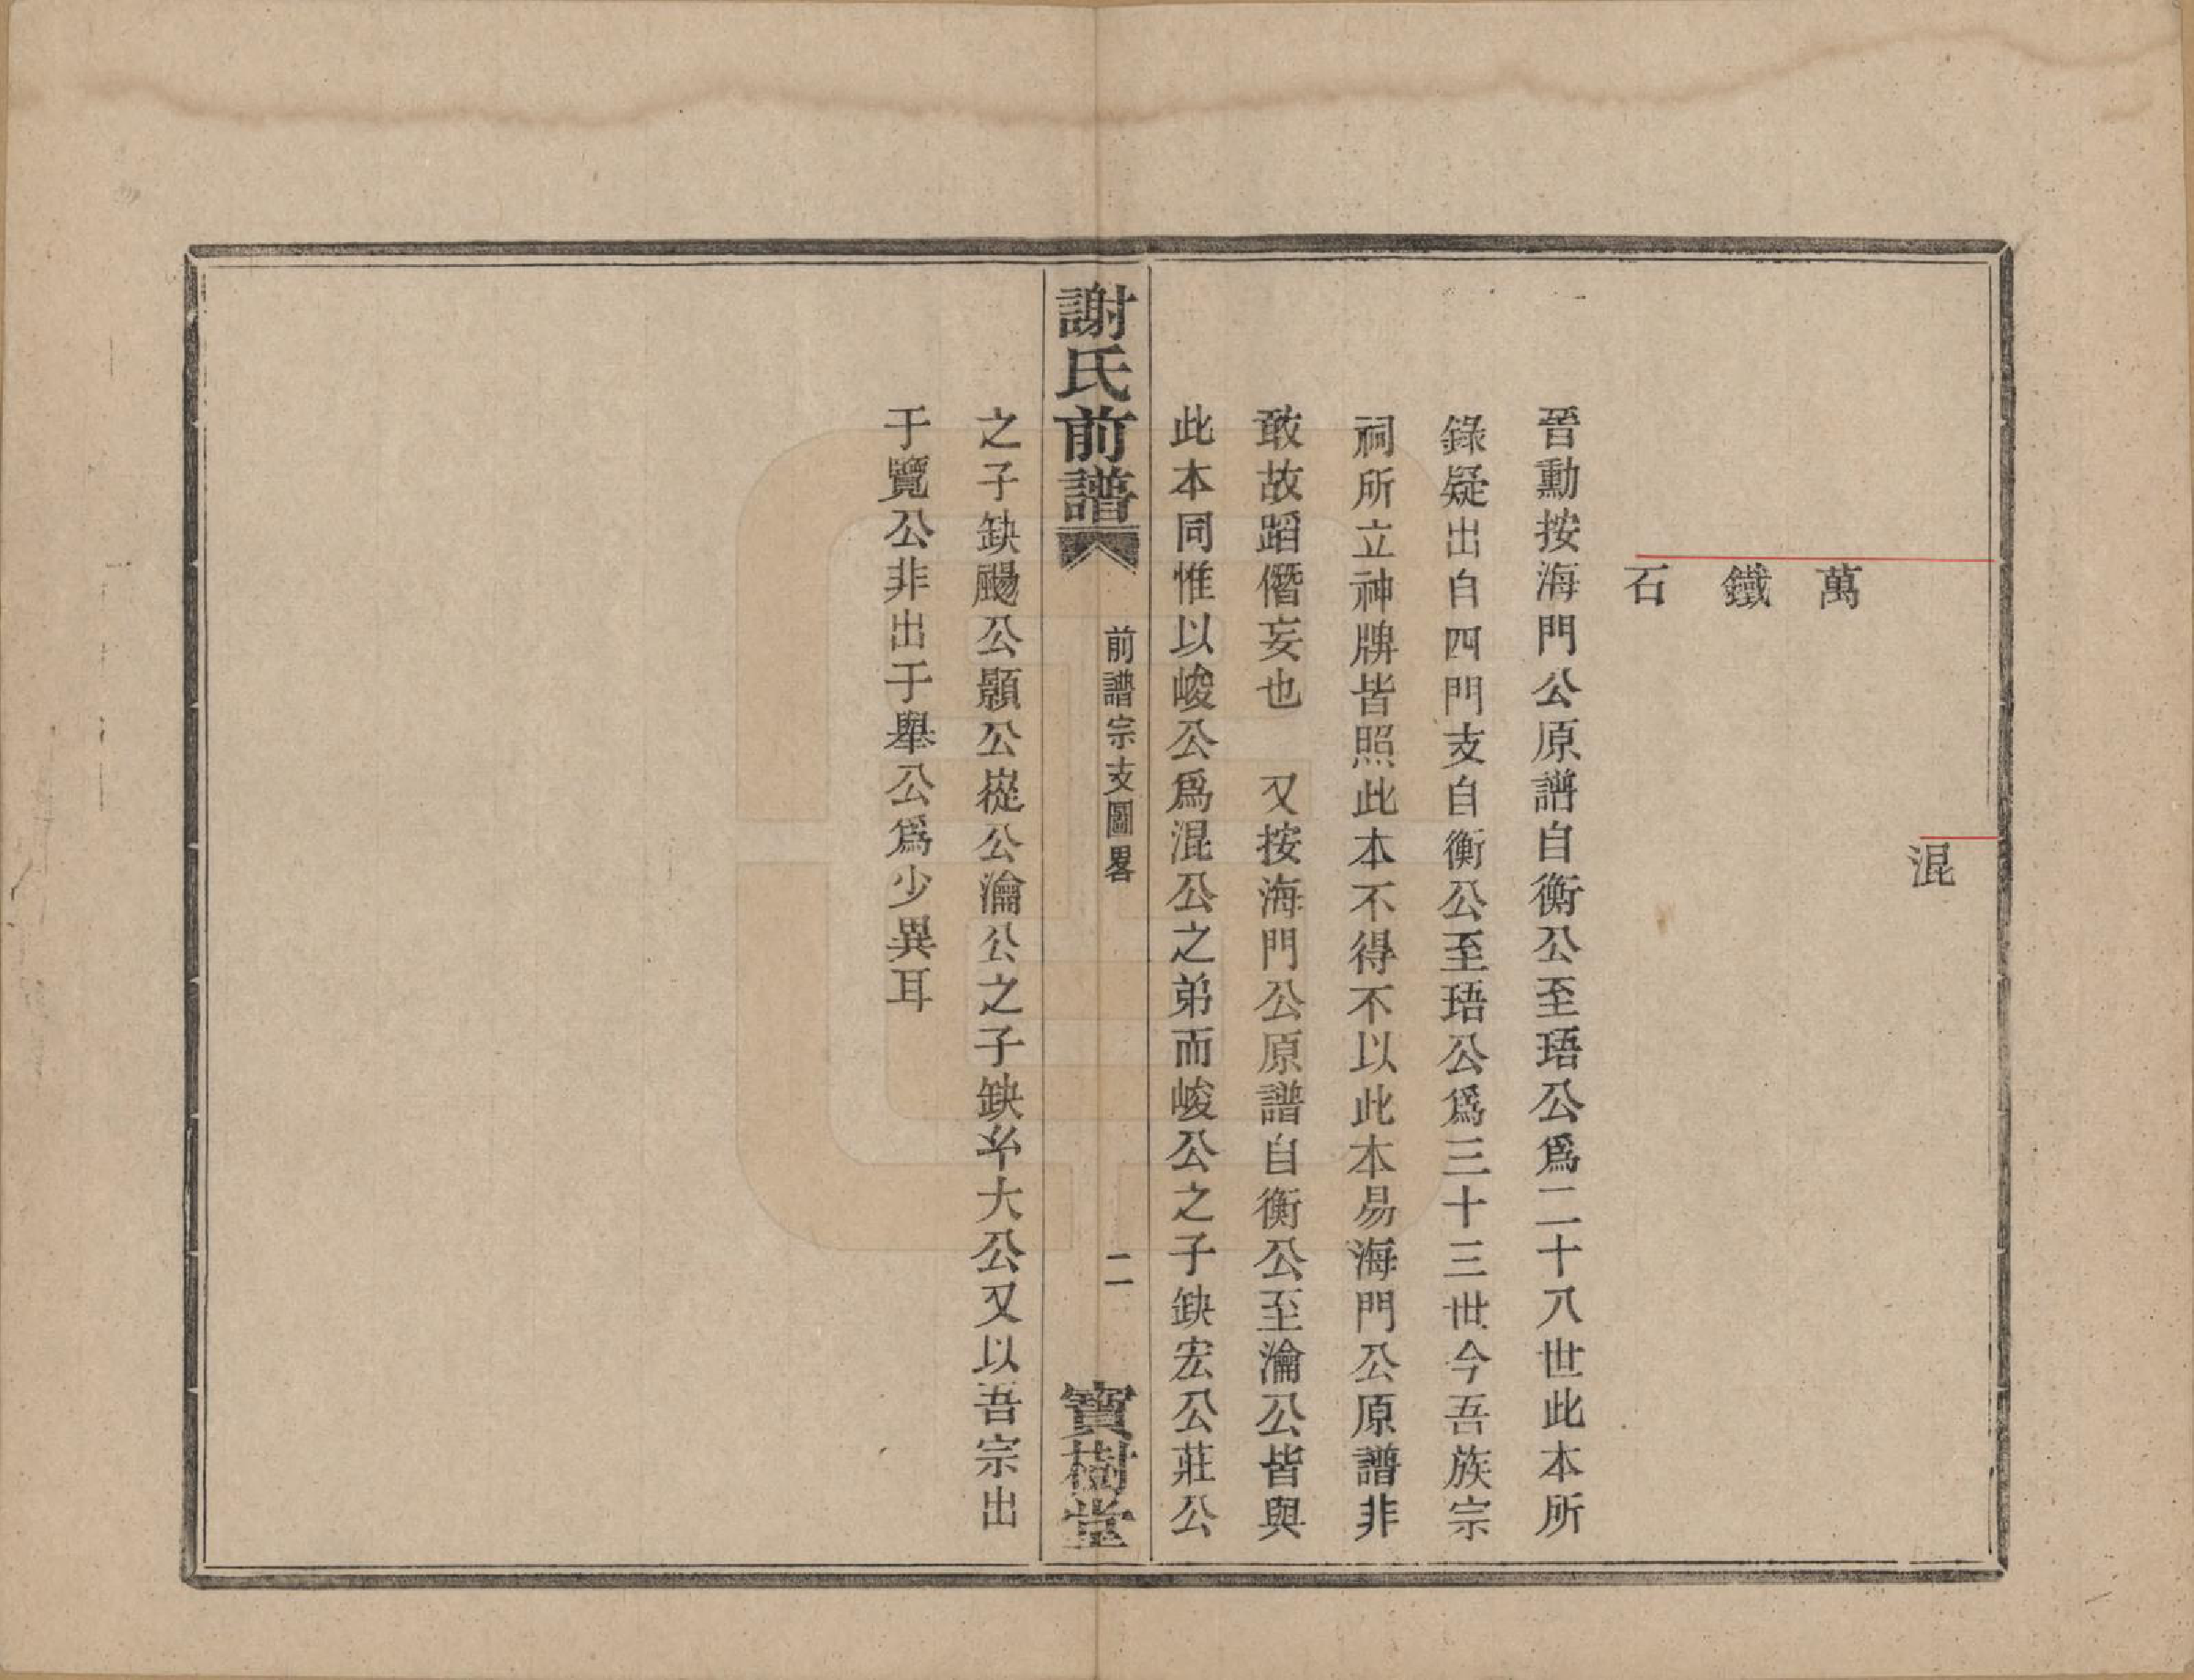 混
萬
鐵
石
晉勳按海門公原譜自衡公至珸公爲二十八世此本所
錄疑出自四門支自衡公至珸公爲三十三世今吾族宗
祠所立神牌皆照此本不得不以此本易海門公原譜非
敢故蹈僭妄也　又按海門公原譜自衡公至瀹公皆與
此本同惟以峻公爲混公之弟而峻公之子缺宏公莊公
謝氏前譜
前譜宗支圖畧
二
寶樹堂
之子缺颺公顥公嵸公瀹公之子缺㚈大公又以吾宗出
于覽公非出于舉公爲少異耳